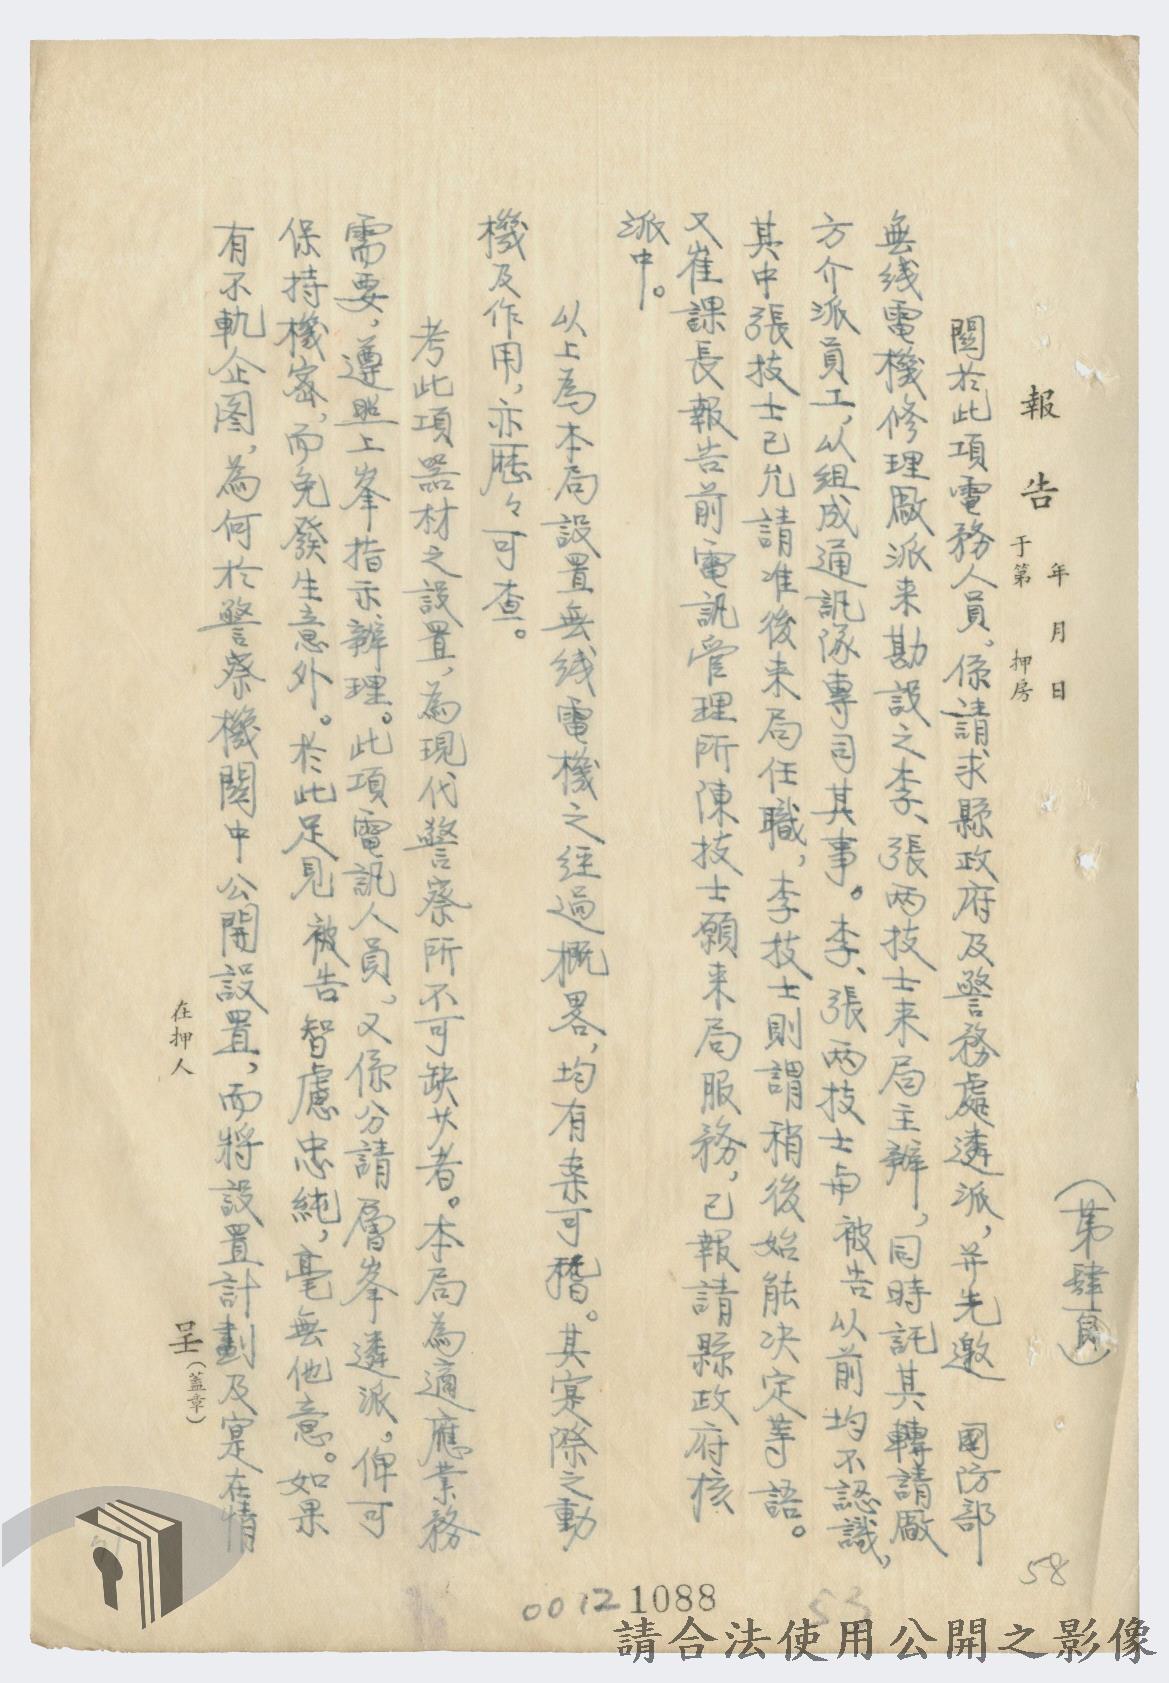 （第肆頁）
報告
年月日
于第押房
關於此項電務人員，係請求縣政府及警務處遴派，并先邀　國防部
無线電機修理廠派来勘設之李、張两技士来局主辦，同時託其轉請廠
方介派員工，以組成通訊隊專司其事。李、張两技士與被告以前均不認識，
其中張技士已允請准後来局任職，李技士則謂稍後始能决定等語。
又崔課長報告前電訊管理所陳技士願来局服務，已報請縣政府核
派中。
以上為本局設置無线電機之经過概畧，均有案可稽。其寔際之動
機及作用，亦歷々可查。
考此項器材之設置，為現代警察所不可缺少者。本局為適應業務
需要，遵照上峯指示辦理。此項電訊人員，又係分請層峯遴派，俾可
保持機密，而免發生意外。於此足見被告智慮忠純，毫無他意。如果
有不軌企图，為何於警察機関中公開設置，而將設置計劃及寔在情
在押人
呈（蓋章）
58
53
00121088
請合法使用公開之影像